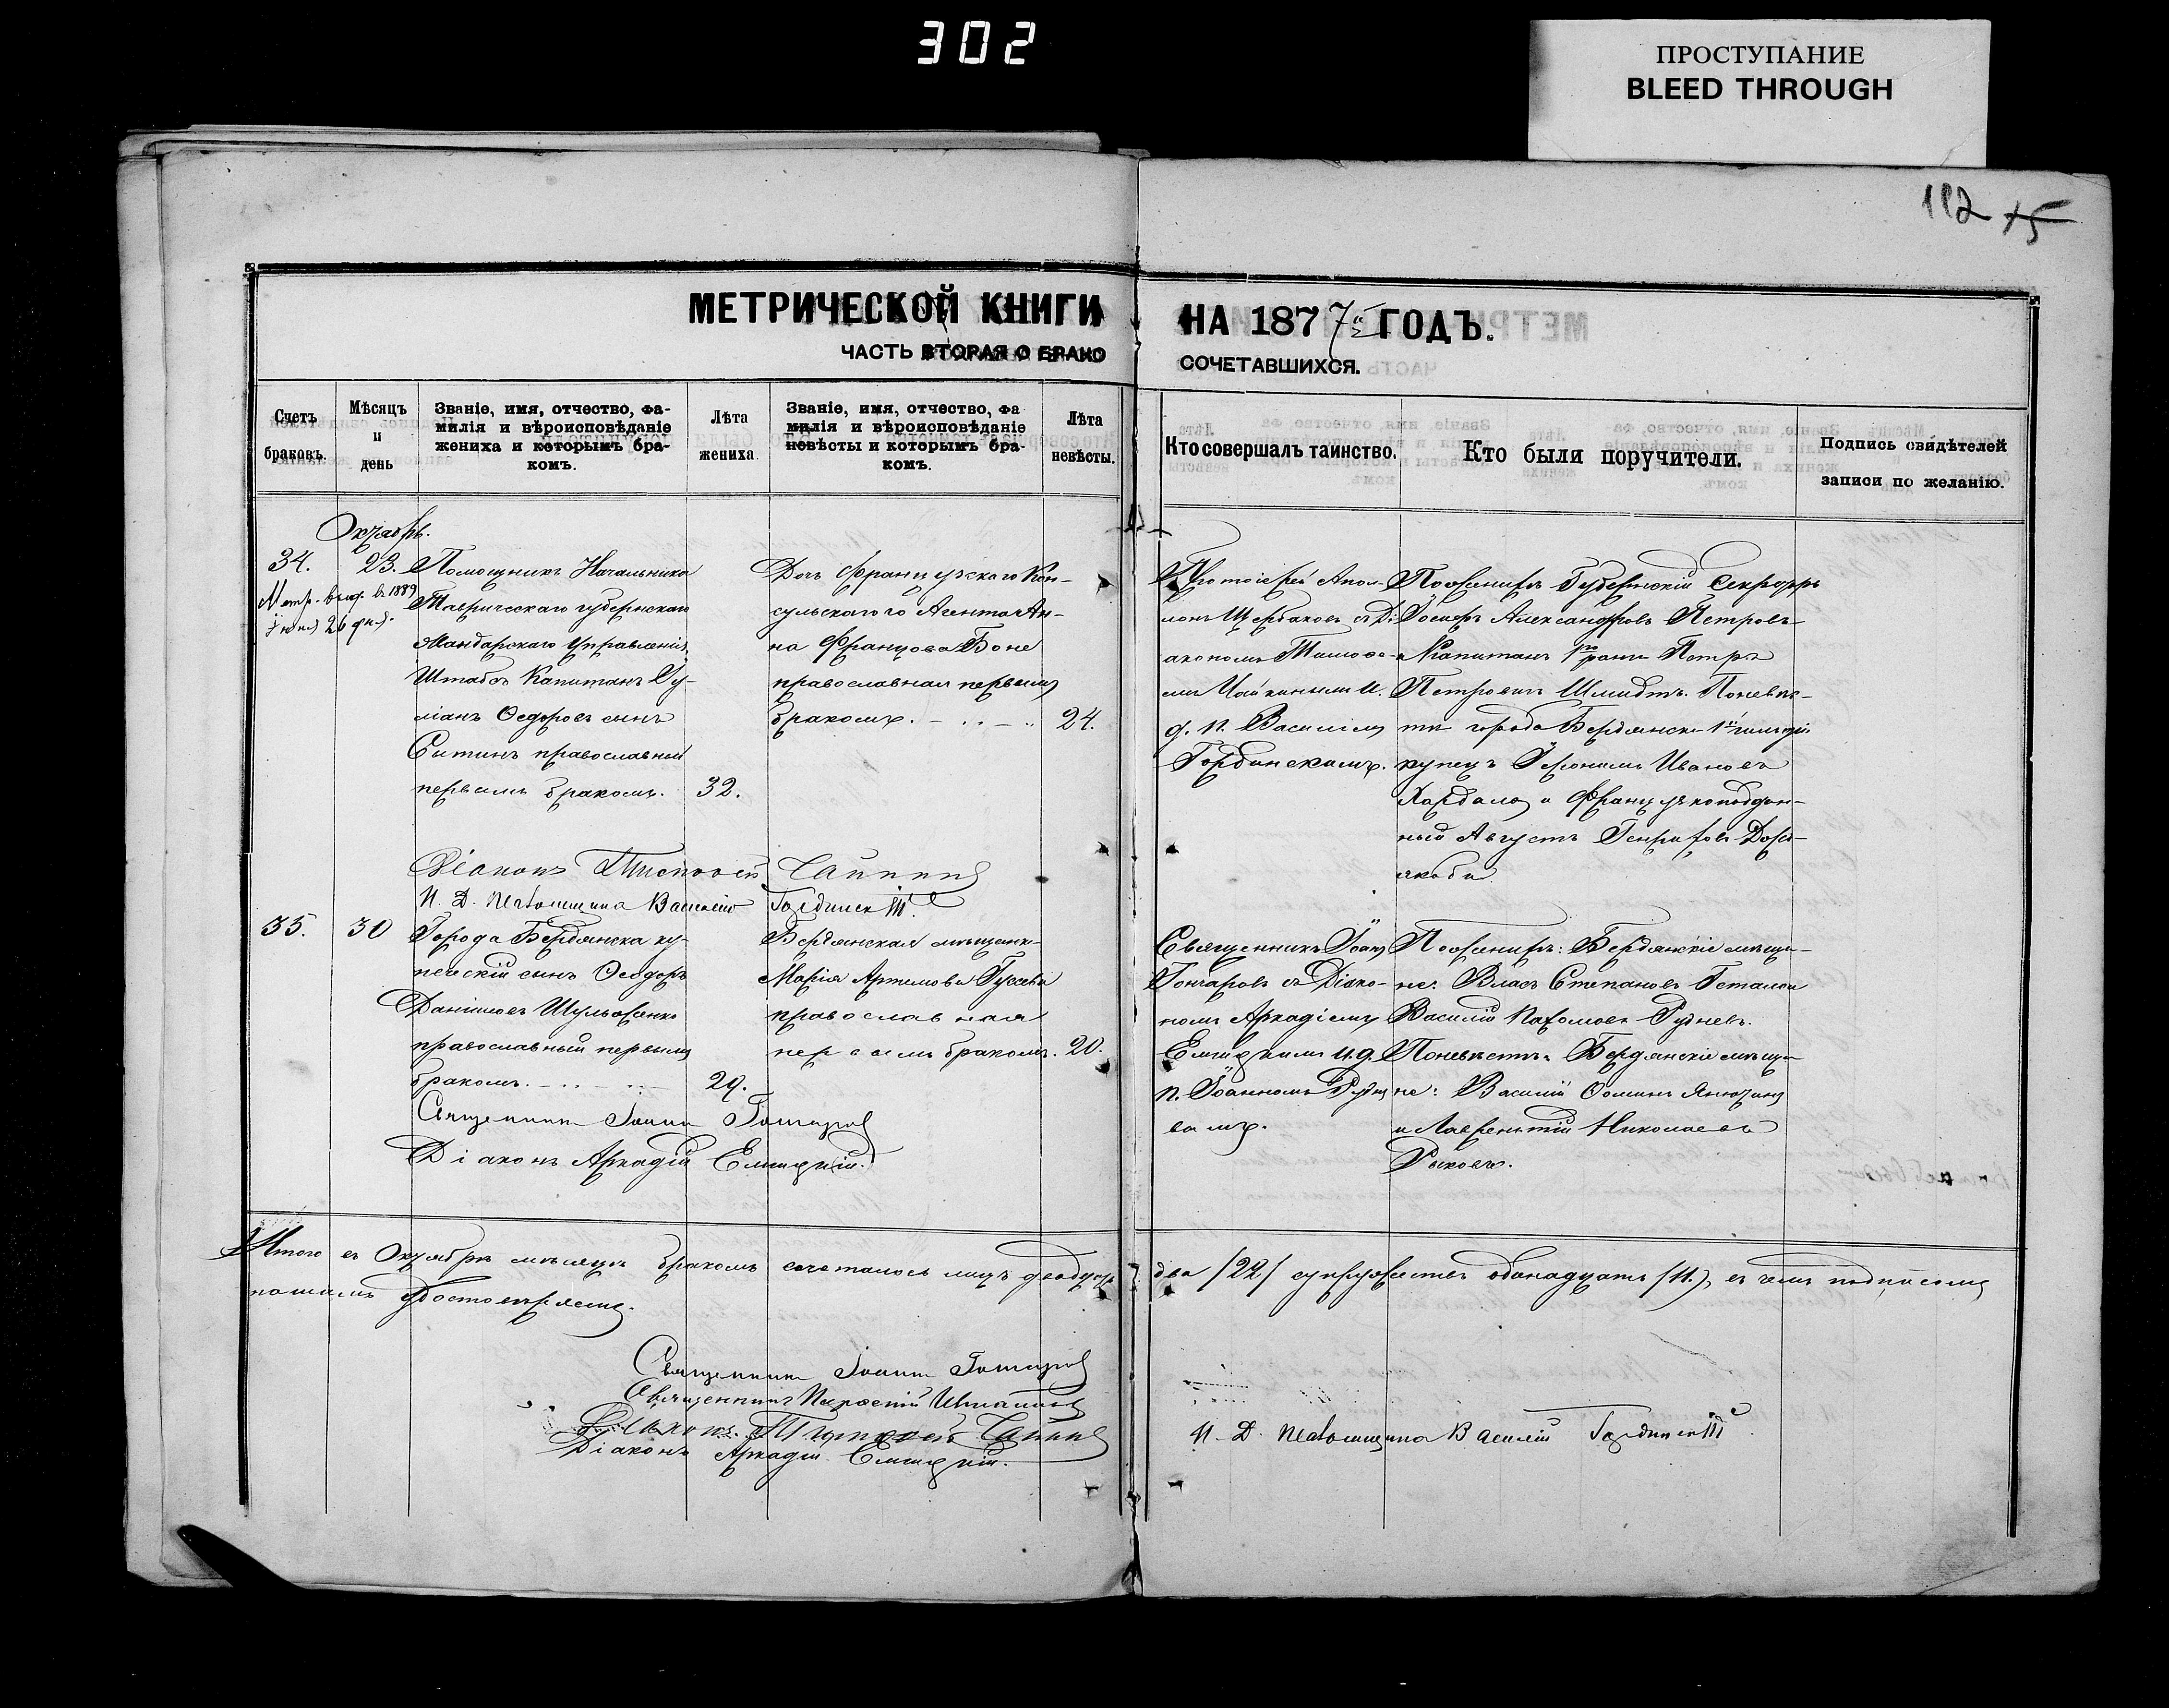 302
ПРОСТУПАНИЕ
BLEED THROUGH
112 75
МЕТРИЧЕСКОЙ КНИГИ
НА 1877й ГОДЪ.
ЧАСТЬ ВТОРАЯ О БРАКО
СОЧЕТАВШИХСЯ.
Счетъ
браковъ.
Мѣсяцъ
и
день
Званіе, имя, отчество, фа-
милія и вѣроисповѣданіе
жениха и которымъ бра-
комъ.
Лѣта
жениха.
Званіе, имя, отчество, фа
милія и вѣроисповѣданіе
невѣсты и которымъ бра-
комъ.
Лѣта
невѣсты.
Кто совершалъ таинство.
Кто были поручители.
Подпись свидѣтелей
записи по желанію.
Октябрь.
34.
23.
Метр. выд. въ 1889
Помощникъ Начальника
Таврическаго губернскаго
Жандарскаго Управленія,
Штабсъ Капитанъ
Ѳедоровъ сынъ
Сытинъ православный
первымъ бракомъ.
32.
Дочь Французскаго Кон-
сульскаго Агента Ан-
на Францова Боне
православная первымъ
бракомъ.
24.
Протоіерей Апол-
лонъ Щербаковъ съ Ді-
акономъ Тимоѳе-
емъ Чайкинымъ и
д. п. Василіемъ
Гординскимъ.
По женихѣ Губернскій Секретарь
Іосифъ Александровъ Петровъ
и Капитанъ 1го ранга Петръ
Петровичъ Шмидтъ. По невѣс-
тѣ города Бердянска 1й гильдіи
купецъ Іеронимъ Ивановъ
и Французскоподдан-
ный Августъ Генриховъ
Діаконъ Тимоѳей Чайкинъ
И. Д. Псаломщика Василій Гординскій
35.
30
Города Бердянска ку-
печескій сынъ Ѳеодоръ
Даніиловъ Шульженко
православный первымъ
бракомъ.
29.
Бердянская мѣщанка
Марія Артемова Гусева
православная
первымъ бракомъ.
20.
Священникъ Іоаннъ
Гончаровъ съ Діако-
номъ Аркадіемъ
и. д.
п. Іоанномъ Рудне-
вымъ.
По женихѣ: Бердянскіе мѣща-
не: Власъ Степановъ
Василій Пахомовъ Рудневъ.
По невѣстѣ: Бердянскіе мѣща-
не: Василій Ѳоминъ
и Лаврентій Николаевъ
Рыковъ.
Священникъ Іоаннъ Гончаровъ
Діаконъ Аркадій
Итого въ Октябрѣ мѣсяцѣ бракомъ сочеталось лицъ двадцать два /22/ супружествъ одинадцать /11./, въ чемъ подписомъ
нашимъ удостовѣряемъ.
Священникъ Іоаннъ Гончаровъ
Священникъ
Діаконъ Тимоѳей Чайкинъ
Діаконъ Аркадій
И. Д. Псаломщика Василій Гординскій